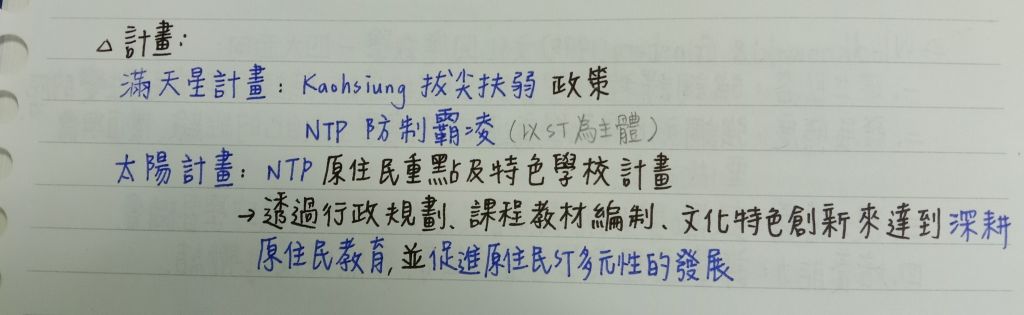 △ 計畫：
滿天星計畫：Kaohsiung 拔尖扶弱 政策
NTP 防制霸凌（以ST為主體）
太陽計畫：NTP 原住民重點及特色學校計畫
→透過行政規劃、課程教材編制、文化特色創新來達到深耕
原住民教育, 並促進原住民ST多元性的發展